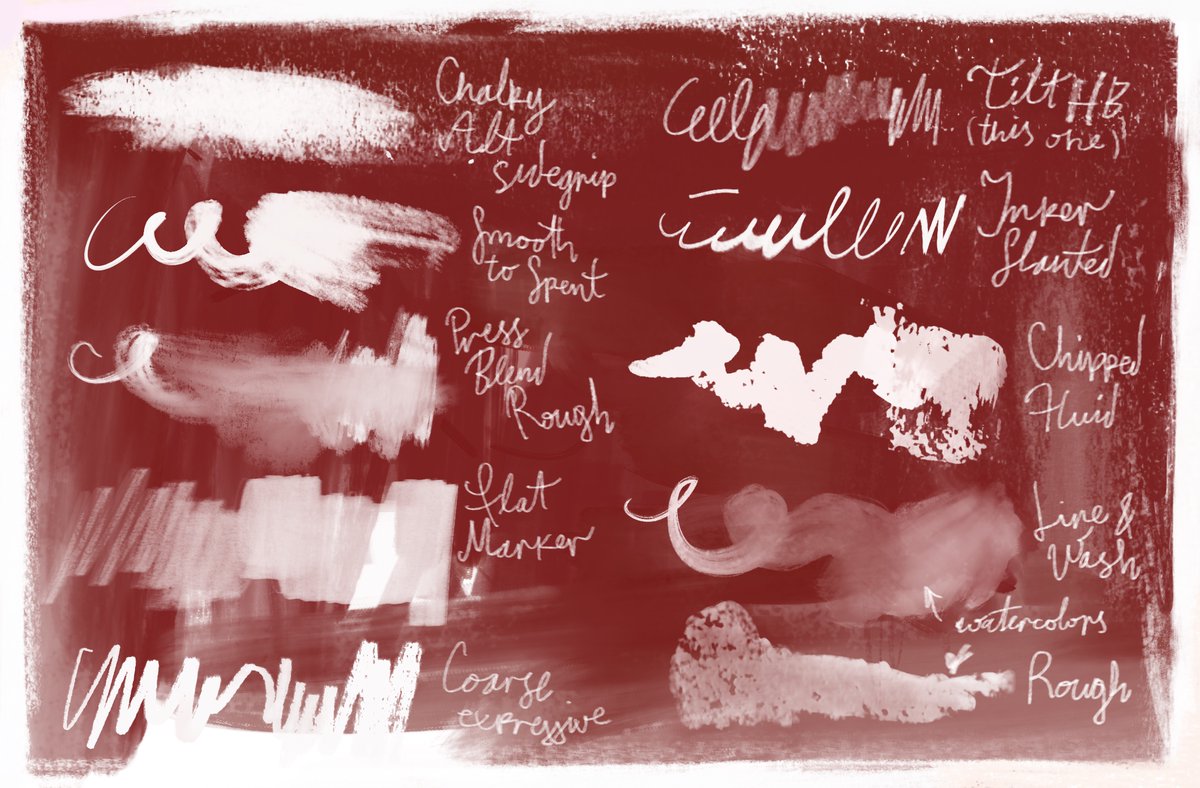 Chalky
Alt
sidegrip
Smooth
to Spent
Press
Blend
Rough
Flat
Marker
Coarse
expressive
Tilt HB
(this one)
Inker
Slanted
Chipped
Fluid
Line &
Wash
watercolors
Rough